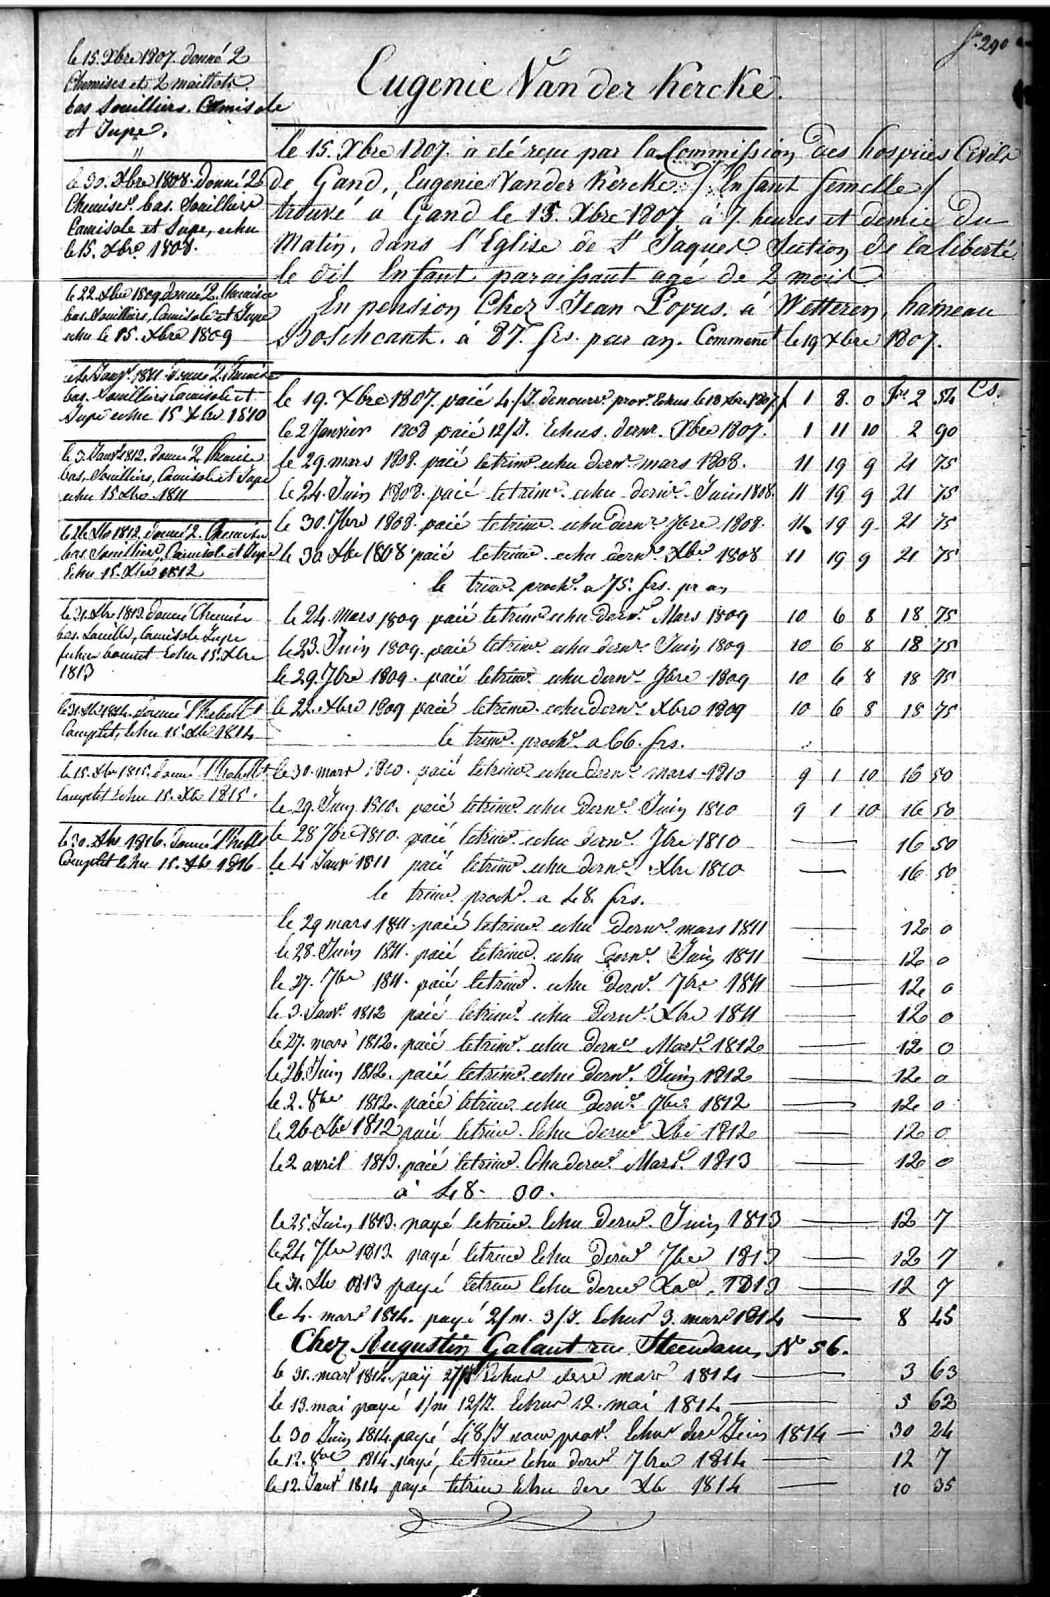 fo. 290
Eugenie Van der Kercke.
le 15. Xbre 1807. donné 2
Chemises et 2 maillots
bas Souilliers. Camisole
et Jupe.
le 30. Xbre 1808. donné 2
Chemises. bas. Souilliers
Camisole et Jupe, echu
le 15. Xbre. 1808.
le 22. Xbre 1809 donné 2. Chemise
bas. Souilliers, Camisole et Jupe
echu le 15. Xbre 1809
Janvr. 1811. donné 2. Chemise
bas. Souilliers Camisole et
Jupe echu 15 Xbre 1810
le 3. Janvr 1812. donné 2 Chemise
bas. Souilliers, Camisole et Jupe
echu 15 Xbre 1811
le 26 Xbre 1812. donné 2. Chemise
bas Souilliers, Camisole et Jupe
Echu 15. Xbre 1812
le 31. Xbre 1813. donné Chemise
bas. Souilliers, Camisole Jupe
bonnet Echu 15. Xbre
1813
le 31. Xbre 1814. donné
Complet, echu 15. Xbre 1814
le 15. Xbre 1815. donné
Complet echu 15. Xbre 1815.
le 30. Xbre 1816. donné
Complet echu 15. Xbre 1816
le 15. Xbre 1807. a été reçu par la Commission des hospices Civils
de Gand, Eugenie Van der Kercke / Enfant femelle /
trouvé à Gand le 15. Xbre 1807 à 7 heures et demie du
Matin, dans l'Eglise de St Jaques Section de la liberté
le dit Enfant paraissant agé de 2 mois
En pension Chez Jean à Wetteren, hameau
Boschcant. à 87. frs. par an. Commencé le 19 Xbre 1807.
le 19. Xbre 1807. paié 4./J. de nourr. prov. Echus. le 18 Xbre 1807 / 1 8. 0 frs 2 54 Cs.
le 2 Janvier 1808 paié 12/J. Echus. dernr. Xbre 1807. 1 11 10 2 90
le 29 mars 1808. paié le trimr. echu dernr. mars 1808. 11 19 9 21 75
le 24. Juin 1808. paié le trimr. echu dernr. Juin 1808. 11 19 9 21 75
le 30. 7bre 1808. paié le trimr. echu dernr. 7bre 1808. 11 19 9 21 75
le 30 Xbre 1808 paié le trimr. echu dernr. Xbre 1808 11 19 9 21 75
le trimr. prochn. a 75. frs. pr an
le 24. Mars 1809 paié le trimr echu dernr. Mars 1809 10 6 8 18 75
le 23. Juin 1809. paié le trimr. echu dernr. Juin 1809 10 6 8 18 75
le 29. 7bre 1809. paié le trimr. echu dernr. 7bre 1809 10 6 8 18 75
le 22. Xbre 1809 paié le trimr. echu dernr. Xbre 1809 10 6 8 18 75
le trimr. prochn. a 66. frs.
le 30. mars 1810. paié le trimr. echu dernr. mars 1810 9 1 10 16 50
le 29. Juin 1810. paié le trimr echu dernr. Juin 1810 9 1 10 16 50
le 28 7bre 1810. paié le trimr. echu dernr. 7bre 1810 — 16 50
le 4 Janvr 1811 paié le trimr. echu dernr. Xbre 1810 — 16 50
le trimr. prochn. a 48. frs.
le 29 mars 1811. paié le trimr echu dernr. mars 1811 — 12 0
le 28. Juin 1811. paié le trimr. echu dernr. Juin 1811 — 12 0
le 27. 7bre 1811. paié le trimr. echu dernr. 7bre 1811 — 12 0
le 3. Janvr. 1812 paié le trimr. echu dernr. Xbre 1811 — 12 0
le 27. mars 1812. paié le trimr. echu dernr. Mars. 1812 — 12 0
le 26. Juin 1812. paié le trimr. echu dernr. Juin 1812 — 12 0
le 2. 8bre 1812. paié le trimr. echu dernr. 7bre 1812 — 12 0
le 26. Xbre 1812 paié le trimr. Echu dernr. Xbre 1812 — 12 0
le 2 avril 1813. paié le trimr. Echu dernr. Mars. 1813 — 12 0
à 48. 00.
le 25. Juin 1813. payé le trimr. Echu dernr. Juin 1813 — 12 7
le 24 7bre 1813. payé le trimr Echu dernr 7bre 1813 — 12 7
le 31. Xbre 1813 payé le trimr Echu dernr Xbre. 1813 — 12 7
le 4. mars 1814. payé 2/m. 3/J. Echus 3. mars 1814 — 8 45
Chez Augustin Galaut rue Steendam, No 56.
le 31. mars 1814. payé 27/J Echus dernr mars 1814 — 3 63
le 13. mai payé 1/m 12/J. Echus 12. mai 1814 — 5 63
le 30 Juin 1814. payé 48/J nour provr. Echus dernr Juin 1814 — 30 24
le 12. 8bre 1814. payé, le trimr Echu dernr 7bre 1814 — 12 7
le 12. Janvr 1814 payé le trimr Echu dernr Xbre 1814 — 10 35